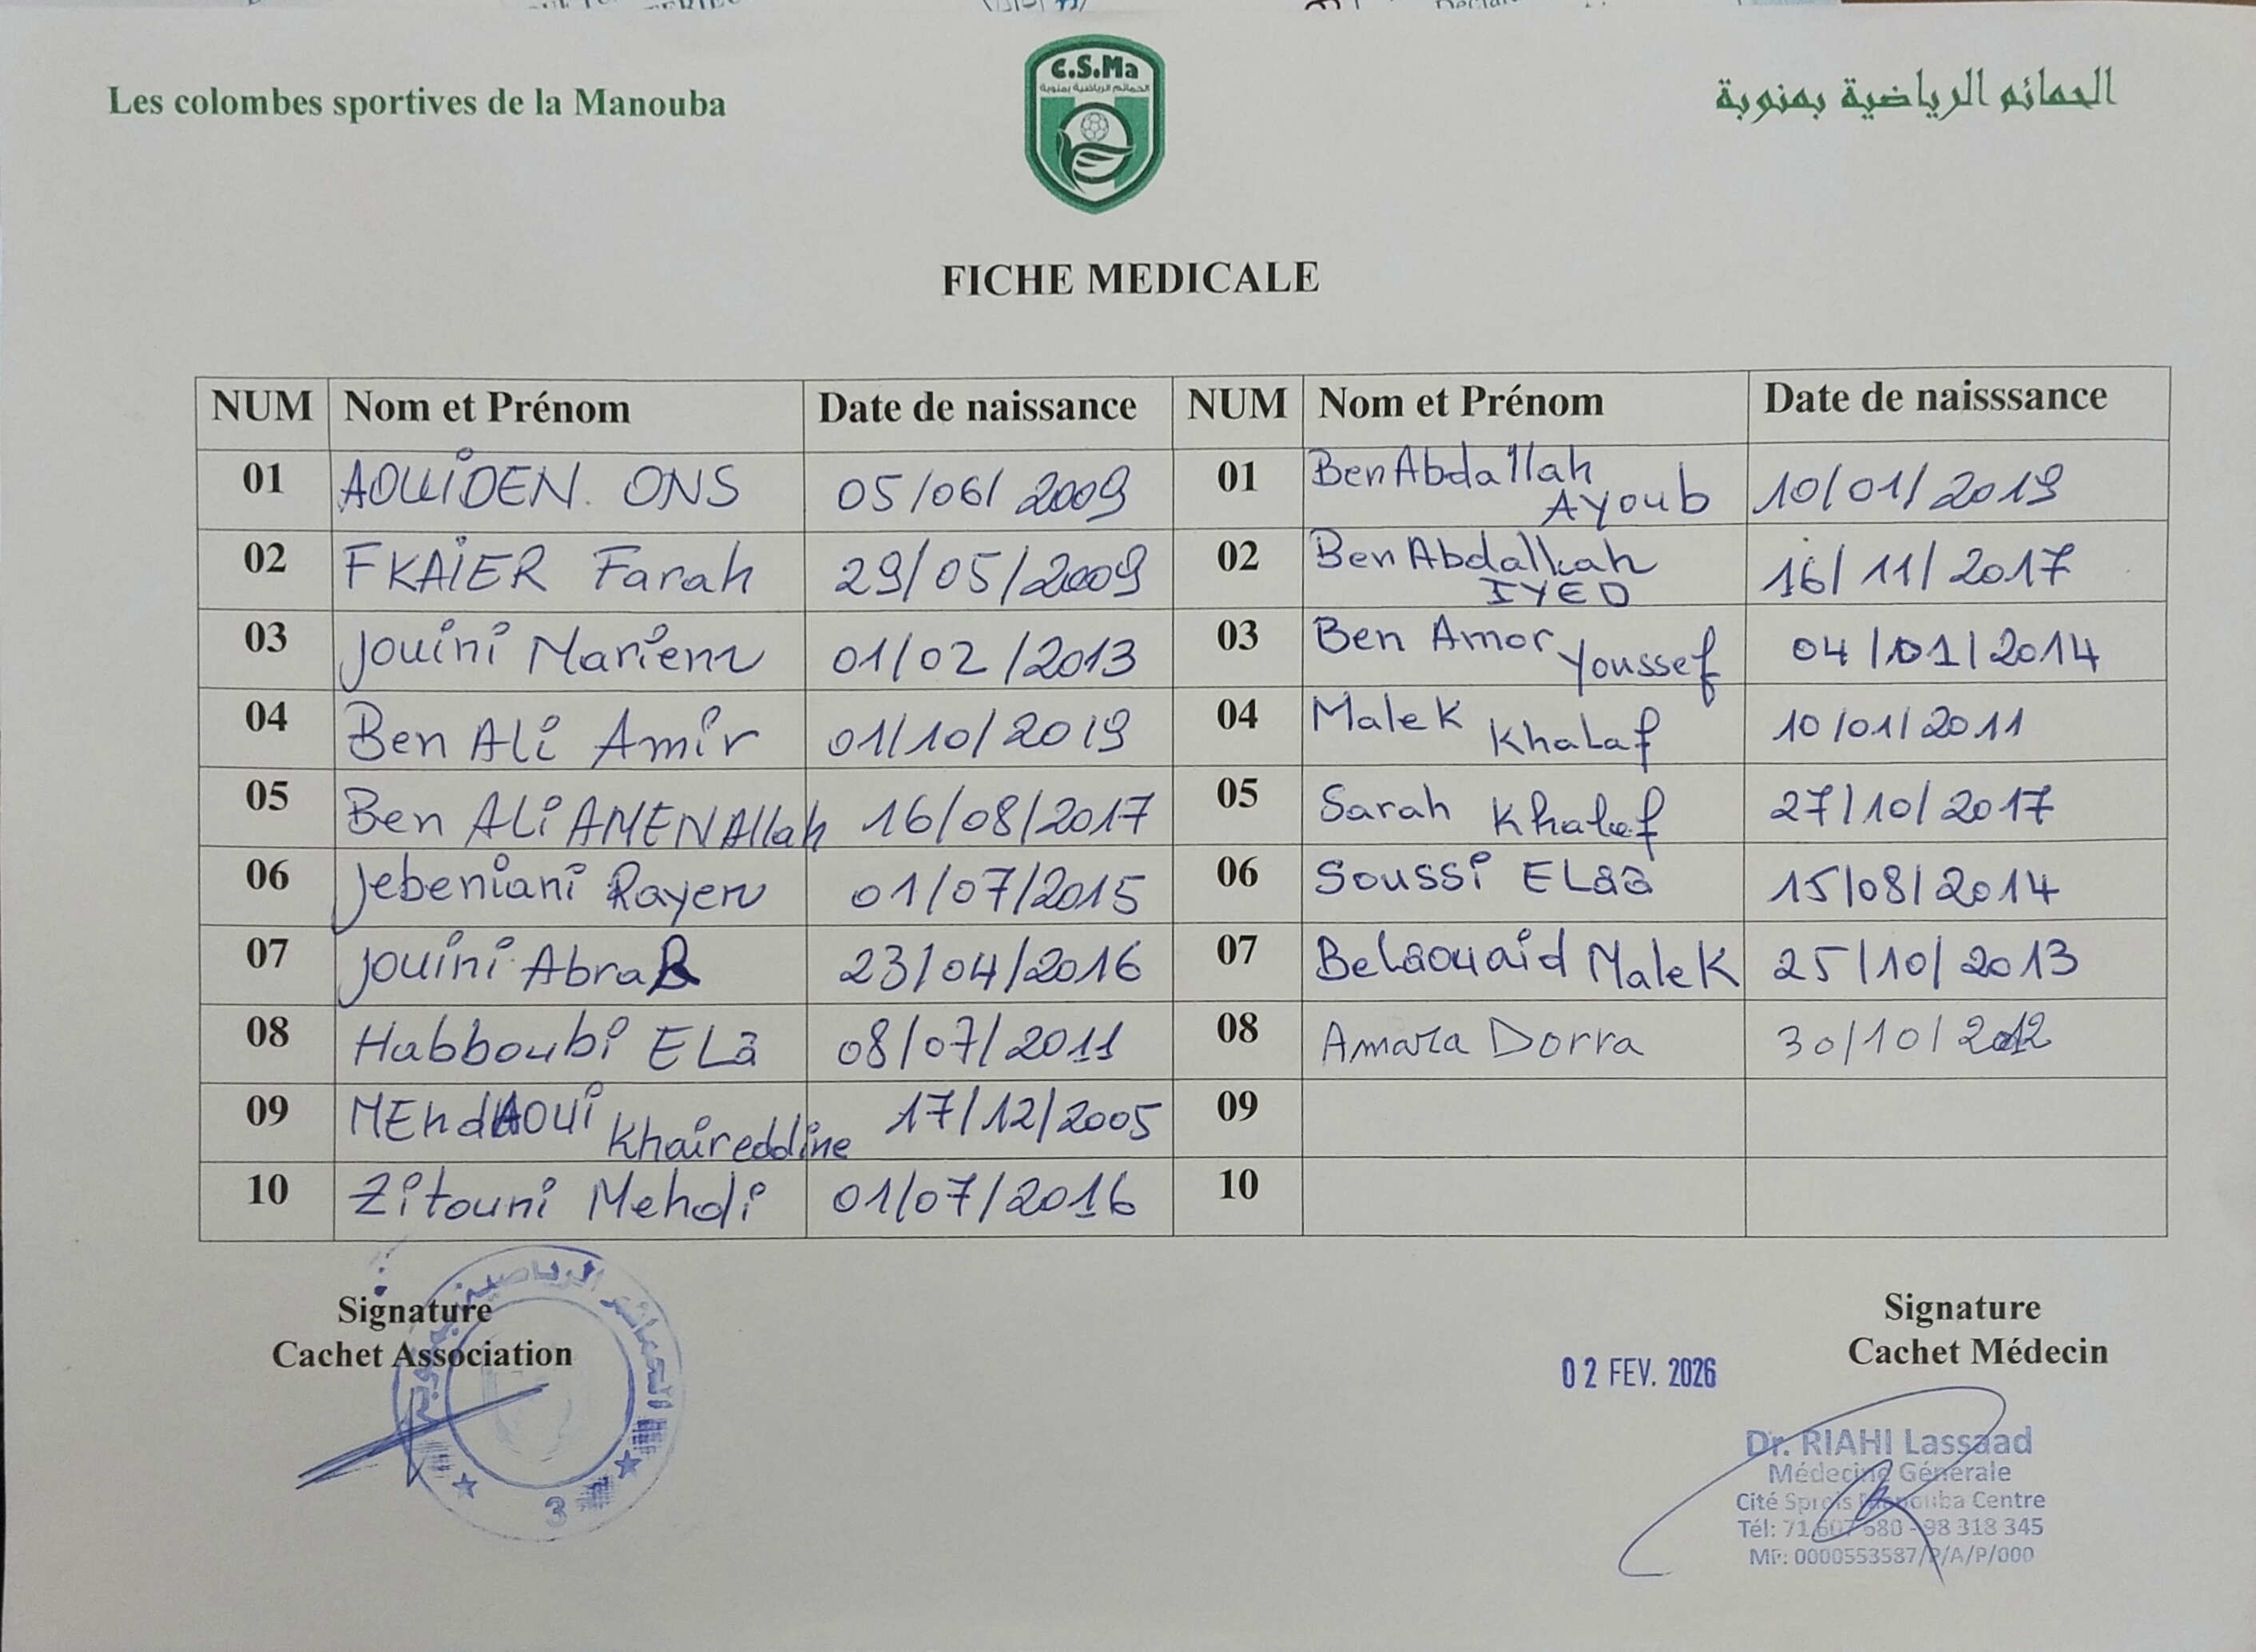 Les colombes sportives de la Manouba
C.S.Ma
الحمائم الرياضية بمنوبة
الحمائم الرياضية بمنوبة
FICHE MEDICALE
NUM Nom et Prénom Date de naissance NUM Nom et Prénom Date de naisssance
01 AOUIDEN. ONS 05/06/2009 01 Ben Abdallah Ayoub 10/01/2019
02 FKAIER Farah 29/05/2009 02 Ben Abdallah IYED 16/11/2017
03 Jouini Mariem 01/02/2013 03 Ben Amor Youssef 04/01/2014
04 Ben Ali Amir 01/10/2019 04 Malek Khalaf 10/01/2011
05 Ben Ali AMENAllah 16/08/2017 05 Sarah Khalaf 27/10/2017
06 Jebeniani Rayen 01/07/2015 06 Soussi ELaa 15/08/2014
07 Jouini AbraR 23/04/2016 07 Belaouaid Malek 25/10/2013
08 Habboubi ELa 08/07/2011 08 Amara Dorra 30/10/2012
09 MEhdAOUi Khaireddine 17/12/2005 09
10 Zitouni Mehdi 01/07/2016 10
Signature
Cachet Association
الحمائم الرياضية
3
Signature
Cachet Médecin
02 FEV. 2026
Dr. RIAHI Lassaad
Médecine Générale
Cité Manouba Centre
Tél: 71 607 680 - 98 318 345
MF: 0000553587/P/A/P/000